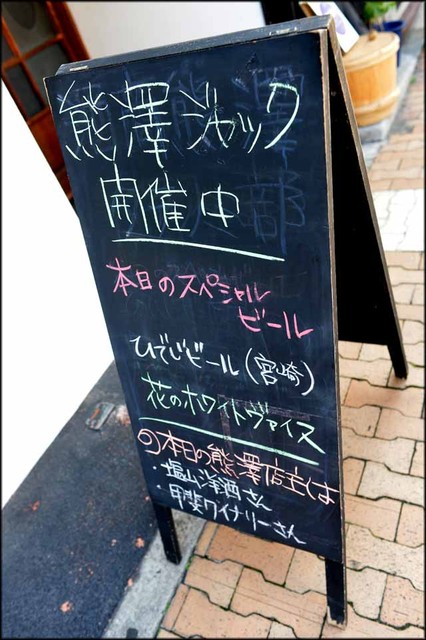 熊澤ジャック
開催中
本日のスペシャル
ビール
ひでじビール(宮崎)
花のホワイトヴァイス
本日の熊澤店主は
・塩山洋酒さん
・甲斐ワイナリーさん